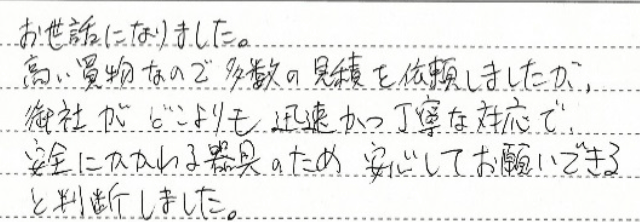 お世話になりました。
高い買物なので多数の見積を依頼しましたが、
御社がどこよりも迅速かつ丁寧な対応で、
安全にかかわる器具のため安心してお願いできる
と判断しました。